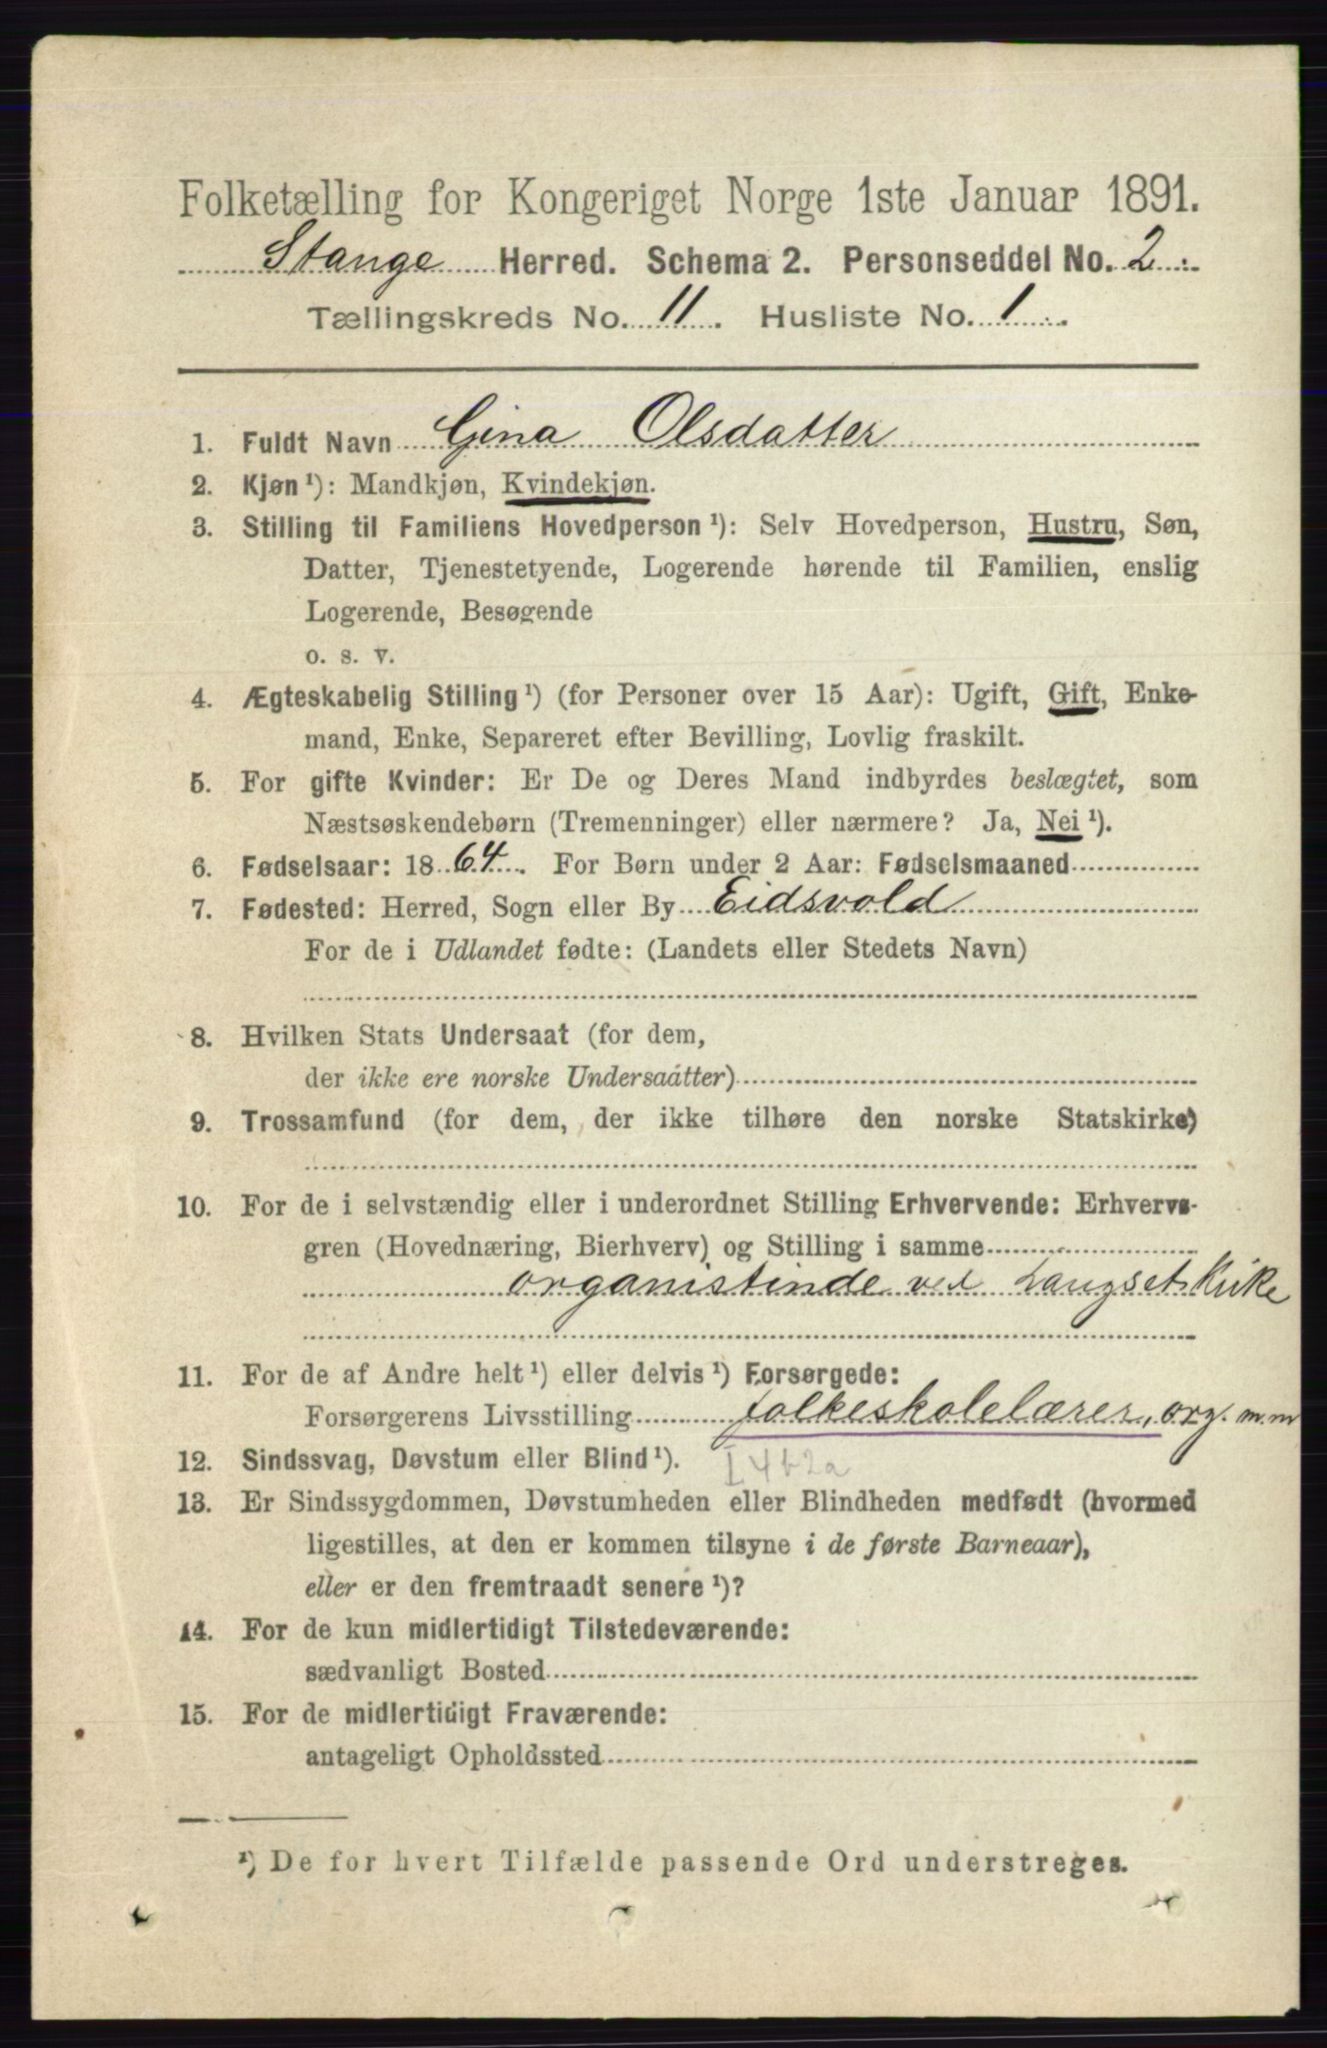 Folketælling for Kongeriget Norge 1ste Januar 1891.
Stange Herred. Schema 2. Personseddel No. 2.
Tællingskreds No. 11. Husliste No. 1.
1. Fuldt Navn Gina Olsdatter
2. Kjøn ¹): Mandkjøn, Kvindekjøn.
3. Stilling til Familiens Hovedperson ¹): Selv Hovedperson, Hustru, Søn,
Datter, Tjenestetyende, Logerende hørende til Familien, enslig
Logerende, Besøgende
o. s. v.
4. Ægteskabelig Stilling ¹) (for Personer over 15 Aar): Ugift, Gift, Enke-
mand, Enke, Separeret efter Bevilling, Lovlig fraskilt.
5. For gifte Kvinder: Er De og Deres Mand indbyrdes beslægtet, som
Næstsøskendebørn (Tremenninger) eller nærmere? Ja, Nei ¹).
6. Fødselsaar: 1864. For Børn under 2 Aar: Fødselsmaaned
7. Fødested: Herred, Sogn eller By Eidsvold
For de i Udlandet fødte: (Landets eller Stedets Navn)
8. Hvilken Stats Undersaat (for dem,
der ikke ere norske Undersaatter)
9. Trossamfund (for dem, der ikke tilhøre den norske Statskirke)
10. For de i selvstændig eller i underordnet Stilling Erhvervende: Erhvervs-
gren (Hovednæring, Bierhverv) og Stilling i samme
organistinde ved Langset Kirke
11. For de af Andre helt ¹) eller delvis ¹) Forsørgede:
Forsørgerens Livsstilling folkeskolelærer, org. m.m
12. Sindssvag, Døvstum eller Blind ¹). I 4b2a
13. Er Sindssygdommen, Døvstumheden eller Blindheden medfødt (hvormed
ligestilles, at den er kommen tilsyne i de første Barneaar),
eller er den fremtraadt senere ¹)?
14. For de kun midlertidigt Tilstedeværende:
sædvanligt Bosted
15. For de midlertidigt Fraværende:
antageligt Opholdssted
¹) De for hvert Tilfælde passende Ord understreges.